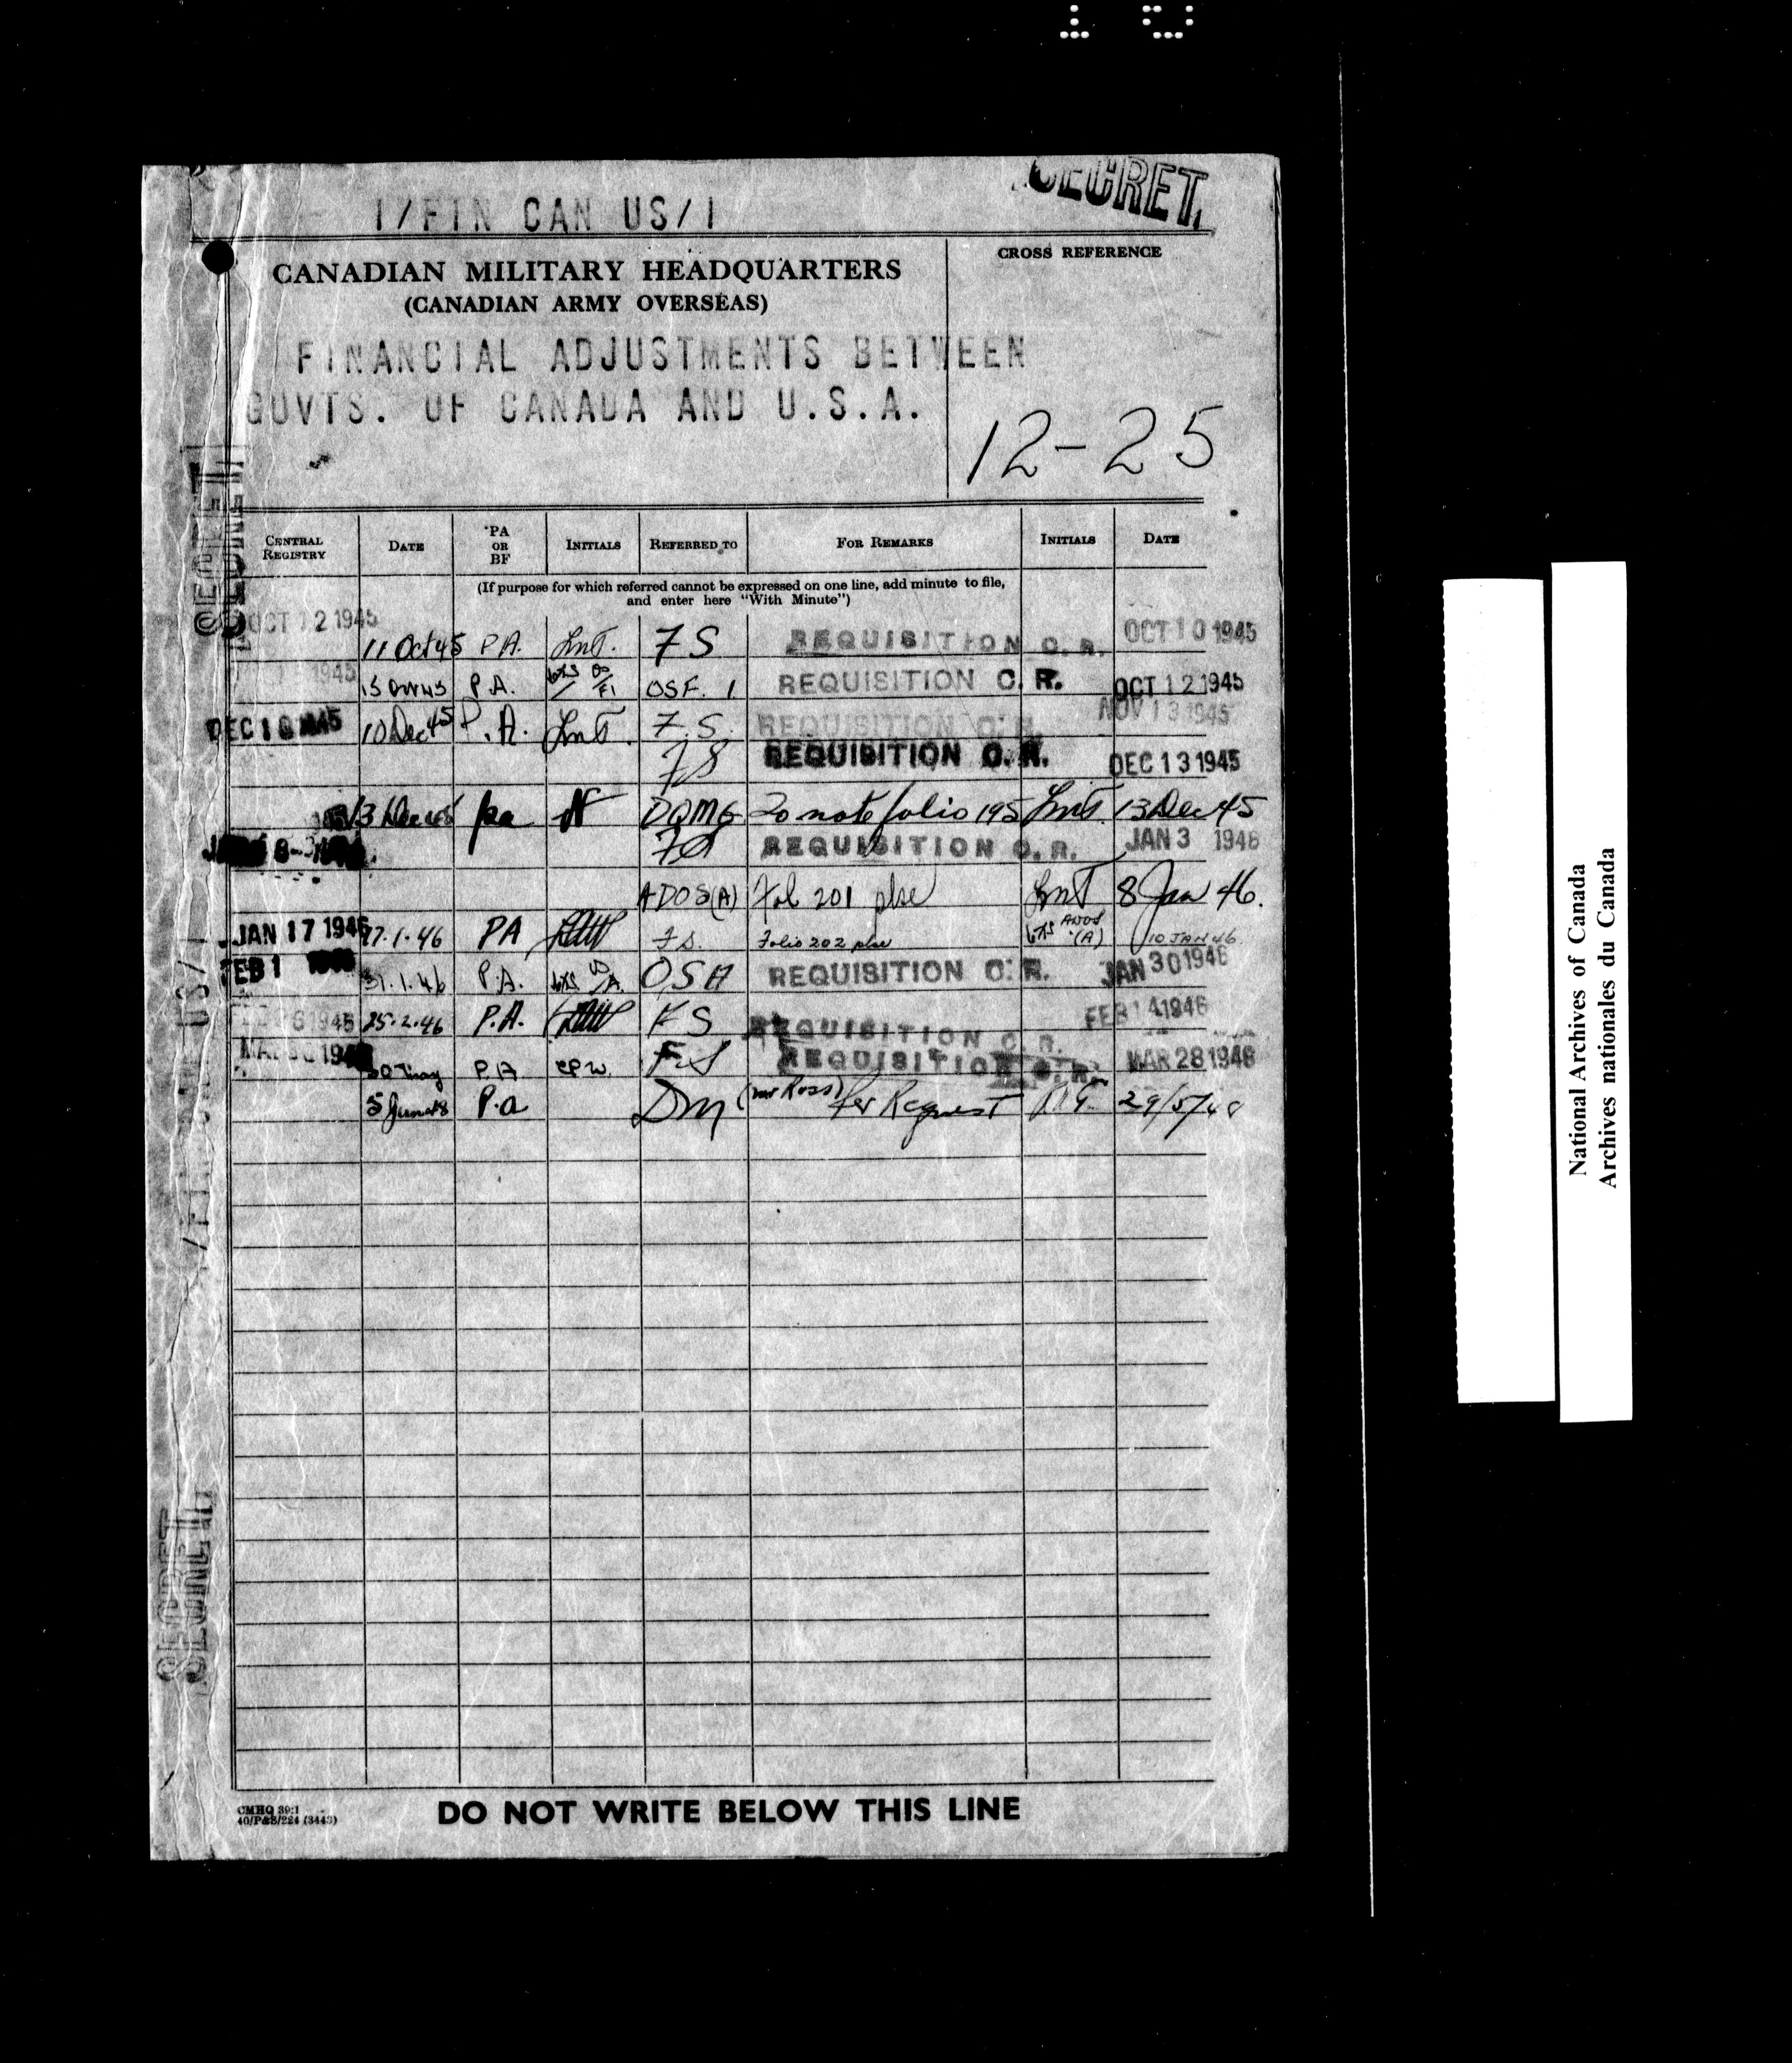 SECRET.
1/FIN CAN US/1
CROSS REFERENCE
CANADIAN MILITARY HEADQUARTERS
(CANADIAN ARMY OVERSEAS)
FINANCIAL ADJUSTMENTS BETWEEN
GOVTS. OF CANADA AND U.S.A.
12-25
SECRET
CENTRAL REGISTRY DATE PA OR BF INITIALS REFERRED TO FOR REMARKS INITIALS DATE
(If purpose for which referred cannot be expressed on one line, add minute to file,
and enter here "With Minute")
OCT 12 1945 11 Oct 45 P.A. FS REQUISITION C.R. OCT 10 1945
1945 P.A. OSF. 1 REQUISITION C.R. OCT 12 1945
DEC 10 1945 10 Dec 45 P.A. F.S. REQUISITION C.R. NOV 13 1945
FS REQUISITION C.R. DEC 13 1945
13 Dec 45 pa DQMG To note folio 195 13 Dec 45
FS REQUISITION C.R. JAN 3 1946
ADOS(A) Fol 201 plse 8 Jan 46.
JAN 17 1946 17.1.46 PA F.S. Folio 202 plse ADOS (A) 10 JAN 46
FEB 1 31.1.46 P.A. OSA REQUISITION C.R. JAN 30 1946
1946 25.2.46 P.A. FS REQUISITION C.R. FEB 14 1946
30 May PA CPW. FS REQUISITION C.R. MAR 28 1946
5 June 48 P.a DM (Mr Ross) Per Request 29/5/48
SECRET
CMHQ 39:1
40/P&S/224 (3443)
DO NOT WRITE BELOW THIS LINE
National Archives of Canada
Archives nationales du Canada